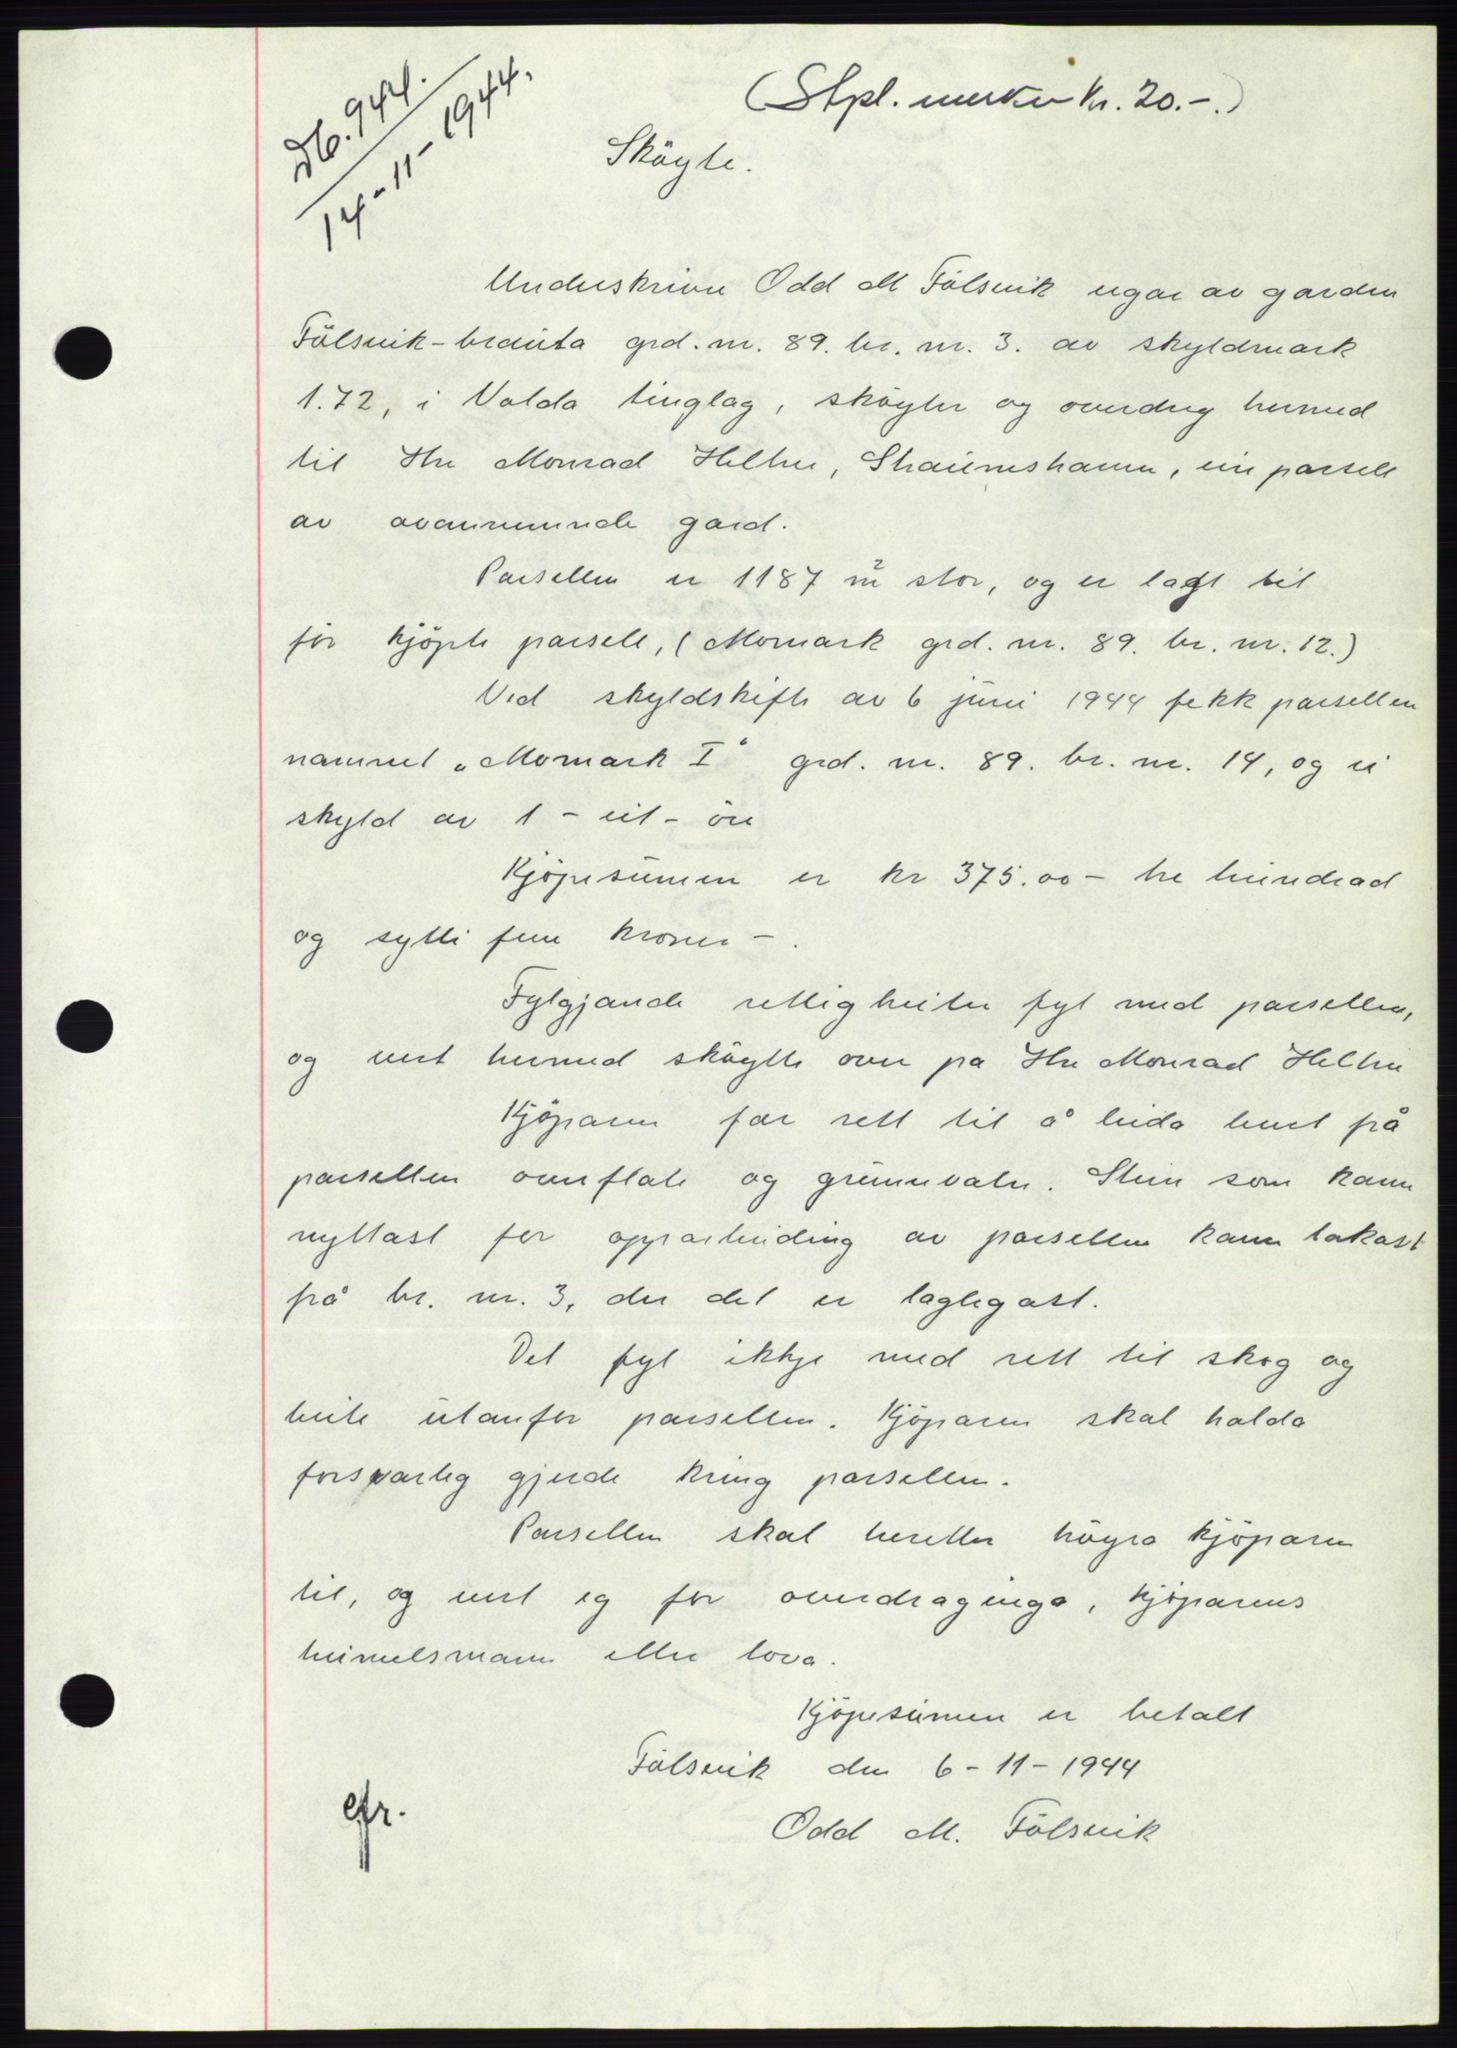 Db. 944.
14-11-1944.
(Stpl. merker kr. 20.-.)
Sköyte.
Underskrivne Odd M Fölsvik eigar av garden
Fölsvik-brauta grd. nr. 89. br. nr. 3. av skyldmark
1.72, i Volda tinglag, sköyter og overdreg hermed
til Hr Monrad Heltne, Straumshamn, ein parsell
av ovannemnde gard.
Parsellen er 1187 m² stor, og er lagt til
før kjöpte parsell, (Momark grd. nr. 89. br. nr. 12.)
Ved skyldskifte av 6 juni 1944 fekk parsellen
namnet „Momark I" grd. nr. 89. br. nr. 14, og ei
skyld av 1 - eit - öre
Kjöpesumen er kr 375.00 - tre hundrad
og sytti fem kroner -.
Fylgjande rettigheiter fyl med parsellen,
og vert hermed sköytte over pa Hr Monrad Heltne
Kjöparen far rett til å leida burt på
parsellen overflate og grunnvatn. Stein som kann
nyttast for opparbeiding av parsellen kann takast
på br. nr. 3, der det er lagligast.
Det fyl ikkje med rett til skog og
beite utanfor parsellen. Kjöparen skal halda
forsvarleg gjerde kring parsellen.
Parsellen skal heretter höyra kjöparen
til, og vert eg for overdraginga, kjöparens
heimelsmann etter lova.
Kjöpesumen er betalt
Fölsvik den 6-11-1944
Odd M. Fölsvik
efr.